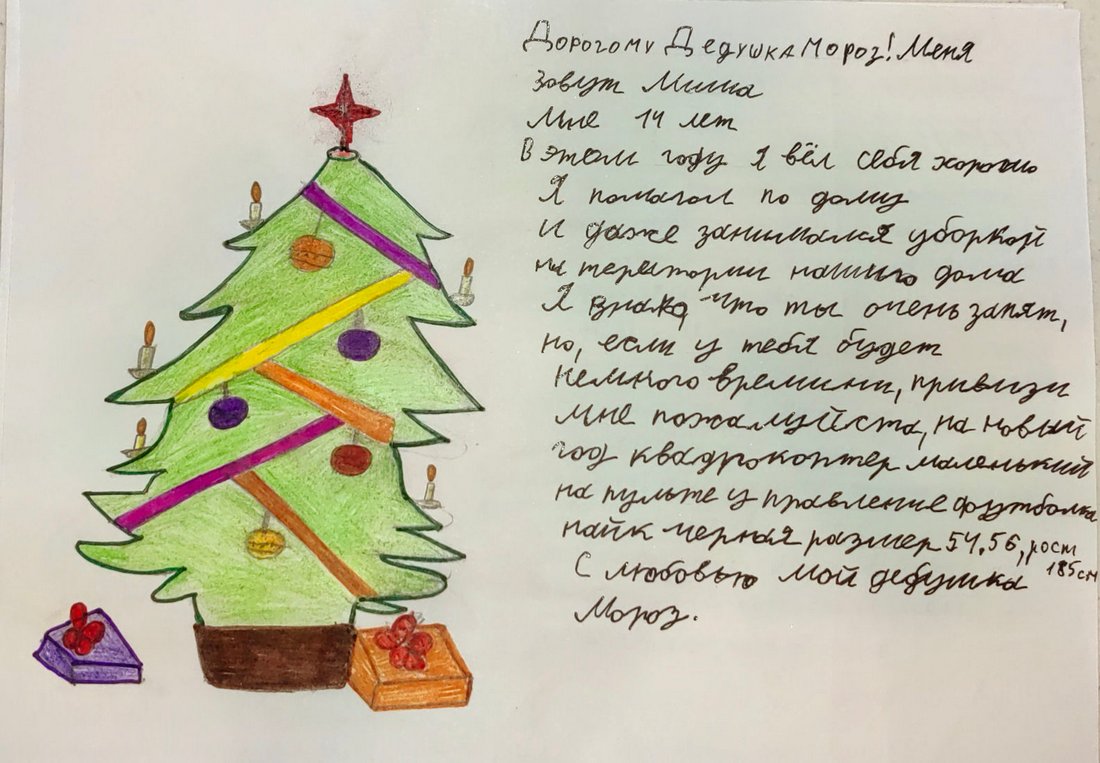 Дорогому Дедушка Мороз! Меня
зовут Миша
Мне 14 лет
В этом году я вёл себя хорошо
Я помагал по дому
и даже занимался уборкой
на теретории нашего дома
Я знаю что ты очень занят,
но, если у тебя будет
немного времини, привизи
мне пожалуйста, на новый
год квадрокоптер маленький
на пульте управление футболка
найк черная размер 54.56, рост
185см
С любовью мой дедушка
Мороз.